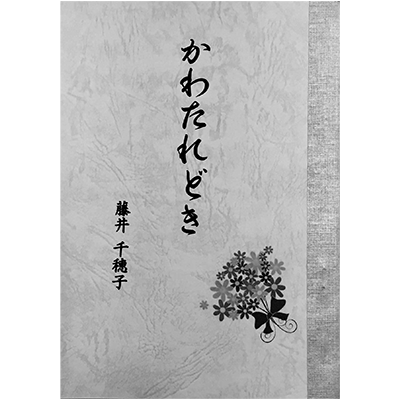 かわたれどき
藤井 千穂子